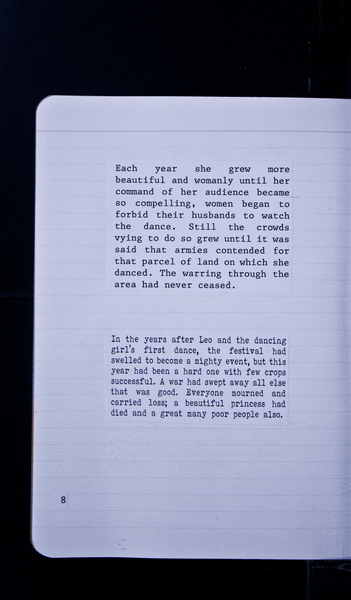 Each year she grew more
beautiful and womanly until her
command of her audience became
so compelling, women began to
forbid their husbands to watch
the dance. Still the crowds
vying to do so grew until it was
said that armies contended for
that parcel of land on which she
danced. The warring through the
area had never ceased.
In the years after Leo and the dancing
girl's first dance, the festival had
swelled to become a mighty event, but this
year had been a hard one with few crops
successful. A war had swept away all else
that was good. Everyone mourned and
carried loss; a beautiful princess had
died and a great many poor people also.
8